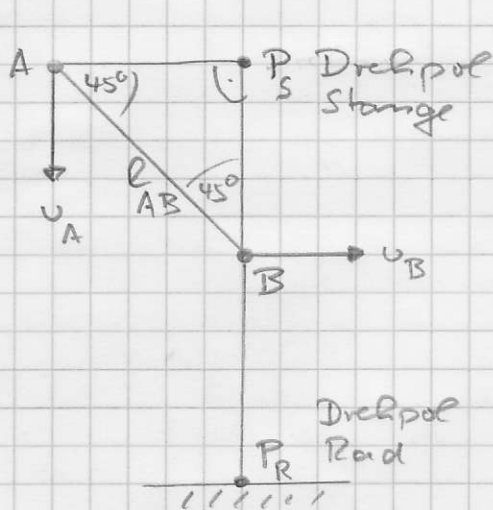 A 45° P_S Drehpol
Stange
l_AB 45°
v_A
B v_B
Drehpol
P_R Rad